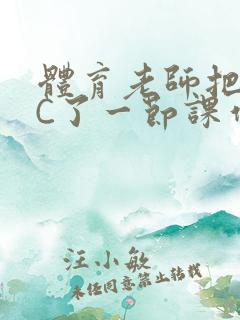 體育老師把
C了一節課
汪小敏
未任同意禁止转载